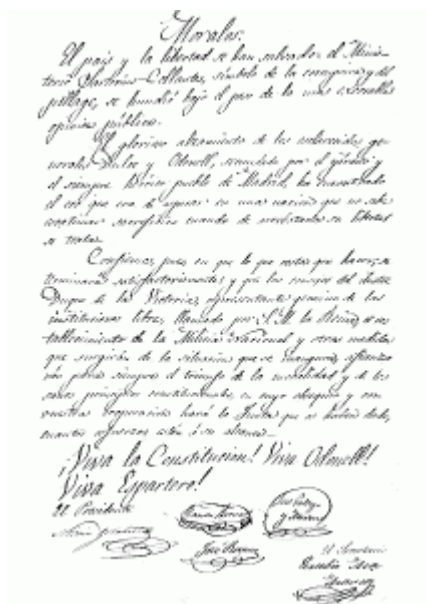 Morales.
El pais y la libertad se han salvado: el Minis-
terio Sartorius-Collantes, símbolo de la corrupcion y del
pillage, se hundió bajo el peso de la mas
opinion pública.
El glorioso alzamiento de los esclarecidos ge-
nerales Dulce y Odonell, secundado por el ejército y
el siempre heroico pueblo de Madrid, ha encontrado
el eco que era de esperar en una nacion que no sabe
sacrificios cuando de su libertad
se trata.
Confiemos, pues en que lo que resta que hacer, se
terminará satisfactoriamente y que los consejos del ilustre
Duque de la Victoria, representante genuino de las
instituciones libres, llamado por S.M. la Reina, el res-
tablecimiento de la Milicia Nacional y otras medidas
que surgirán de la situacion que se inaugura, afianza-
rán para siempre el triunfo de la moralidad y de los
sanos principios constitucionales, en cuyo obsequio y con
vuestra cooperacion hará la Junta que os habeis dado,
cuantos esfuerzos estén á su alcance.
¡Viva la Constitucion! Viva Odonell!
Viva Espartero!
El Presidente
El Secretario